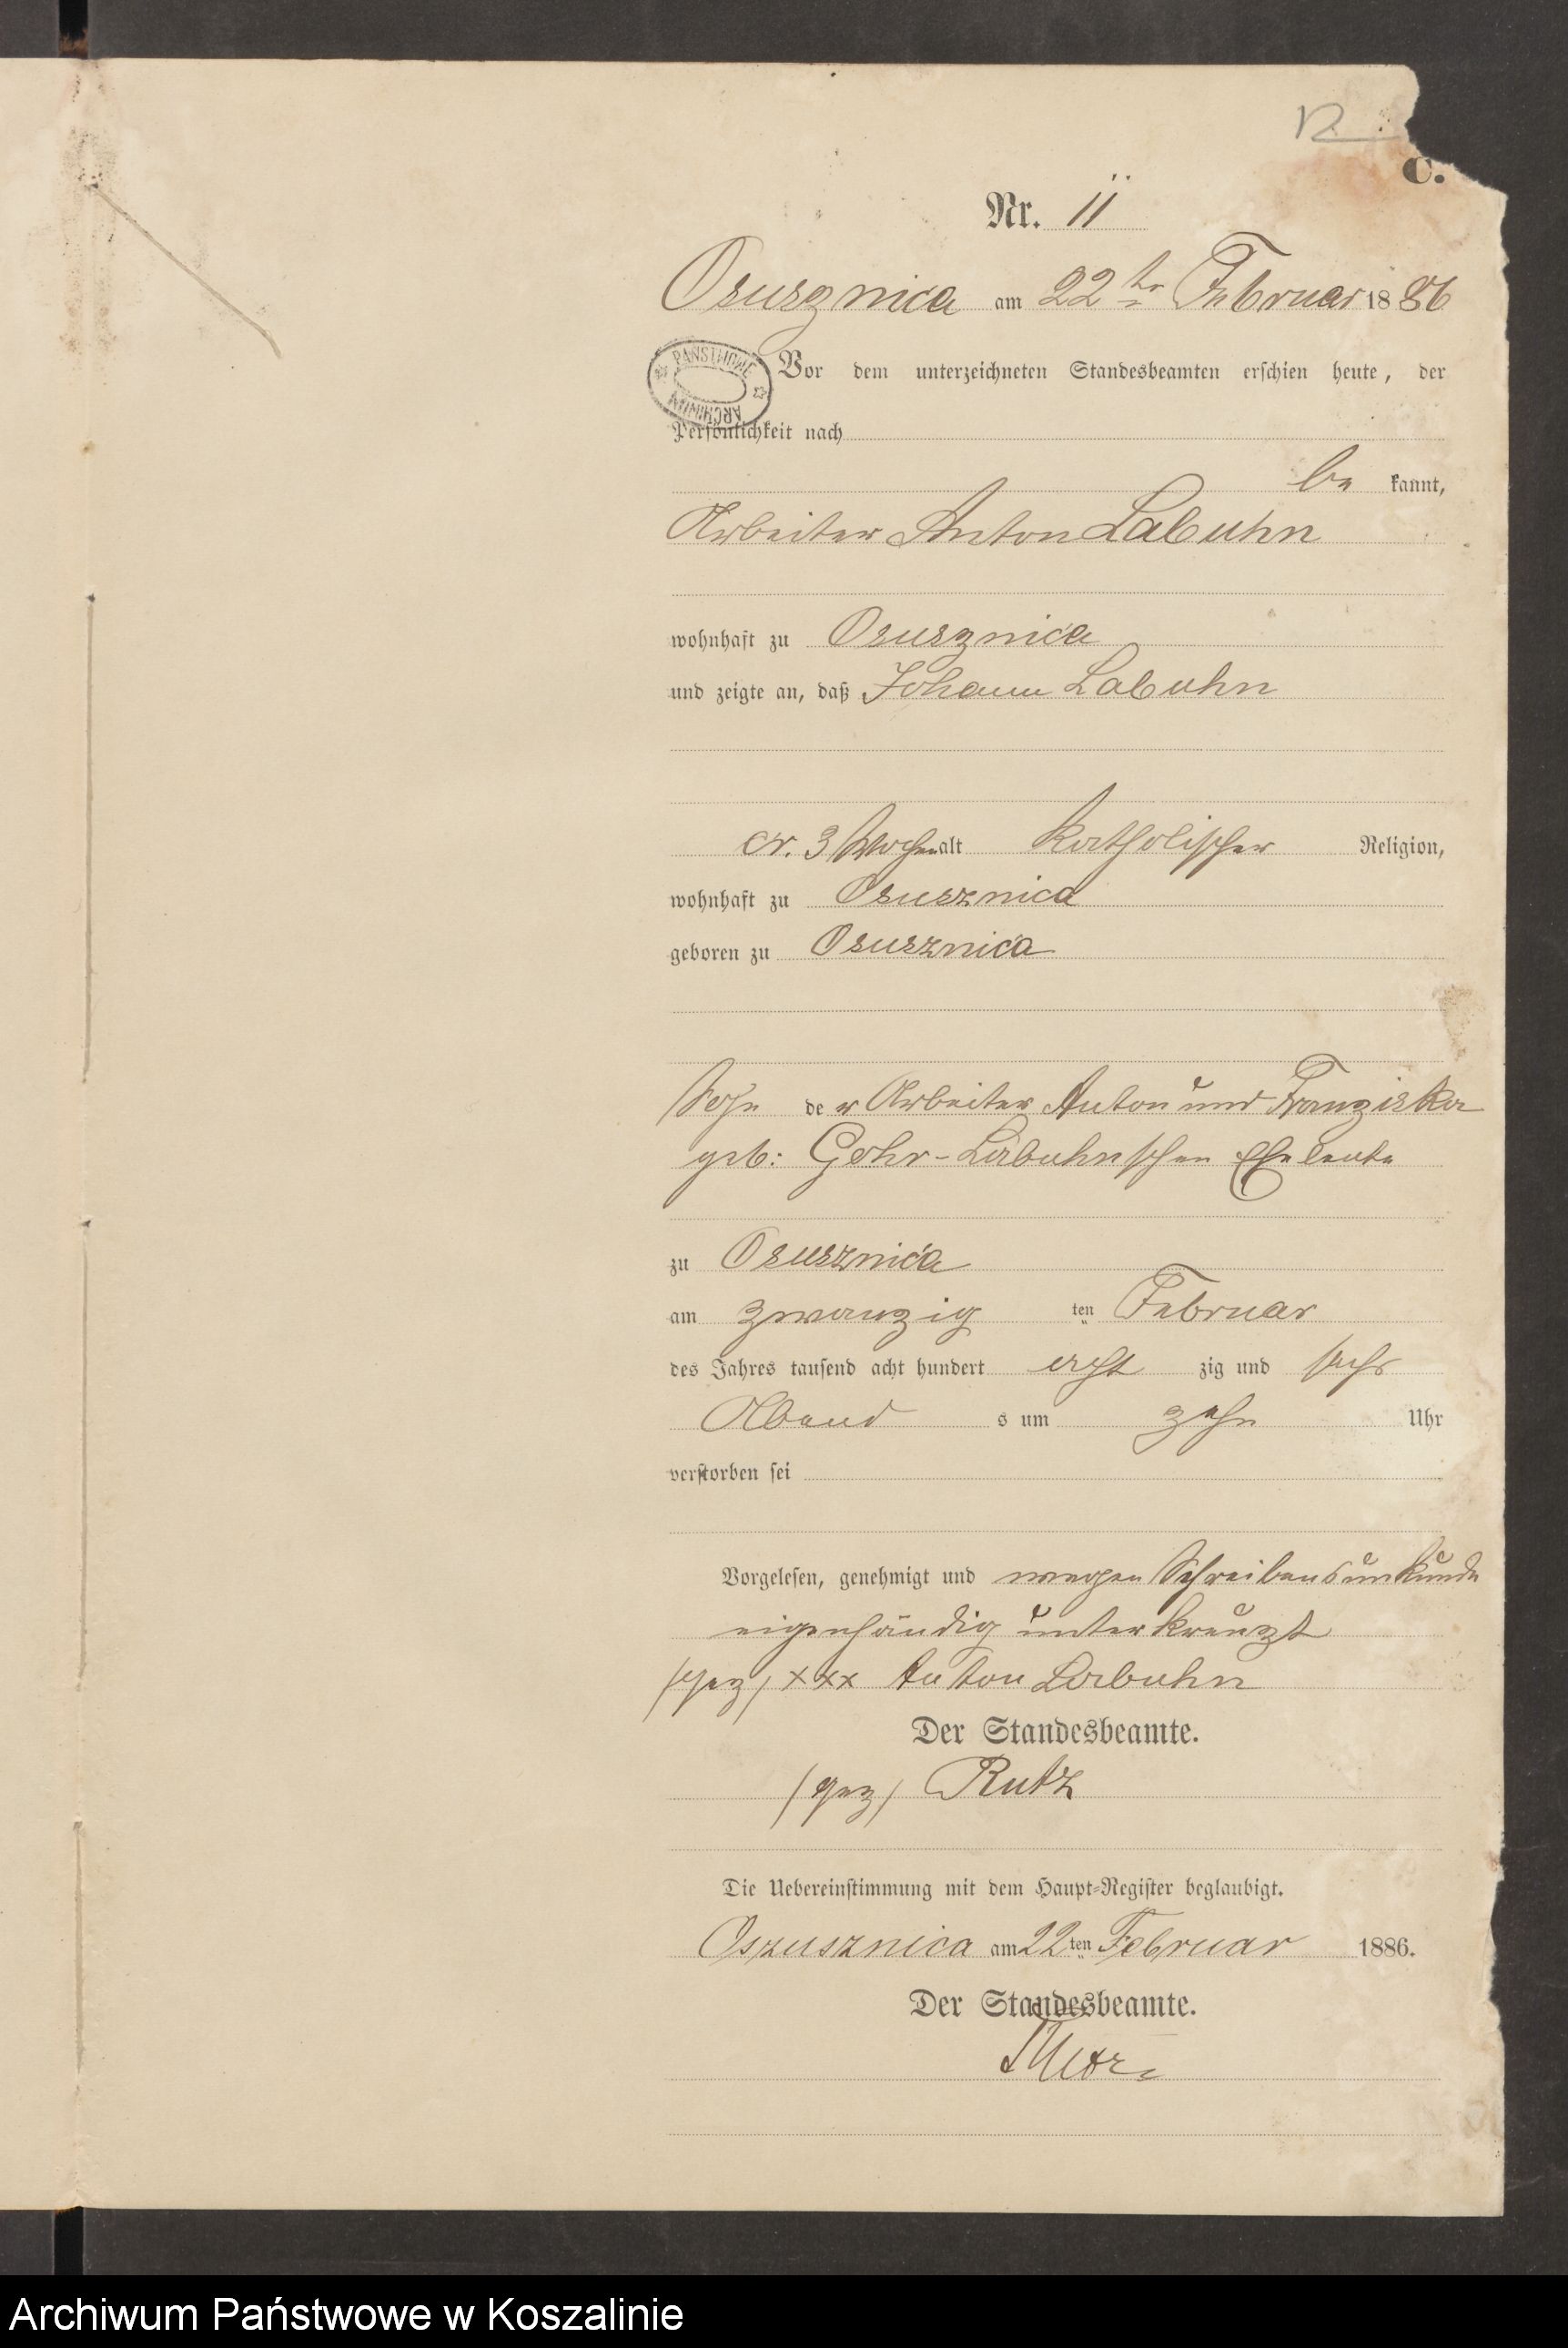 12
C.
Nr. 11
Osusznica am 22ten Februar 1886
PAŃSTWOWE ARCHIWUM
Vor dem unterzeichneten Standesbeamten erschien heute, der
Persönlichkeit nach
be kannt,
Arbeiter Anton Labuhn
wohnhaft zu Osusznica
und zeigte an, daß Johann Labuhn
cr. 3 Wochen alt Katholischer Religion,
wohnhaft zu Osusznica
geboren zu Osusznica
Sohn der Arbeiter Anton und Franziska
geb: Gohr-Labuhnschen Eheleute
zu Osusznica
am zwanzig ten Februar
des Jahres tausend acht hundert acht zig und sechs
Abend s um zehn Uhr
verstorben sei
Vorgelesen, genehmigt und wegen Schreibensunkunde
eigenhändig unterkreuzt
(gez) xxx Anton Labuhn
Der Standesbeamte.
(gez) Rutz
Die Uebereinstimmung mit dem Haupt-Register beglaubigt.
Oszusznica am 22ten Februar 1886.
Der Standesbeamte.
Archiwum Państwowe w Koszalinie